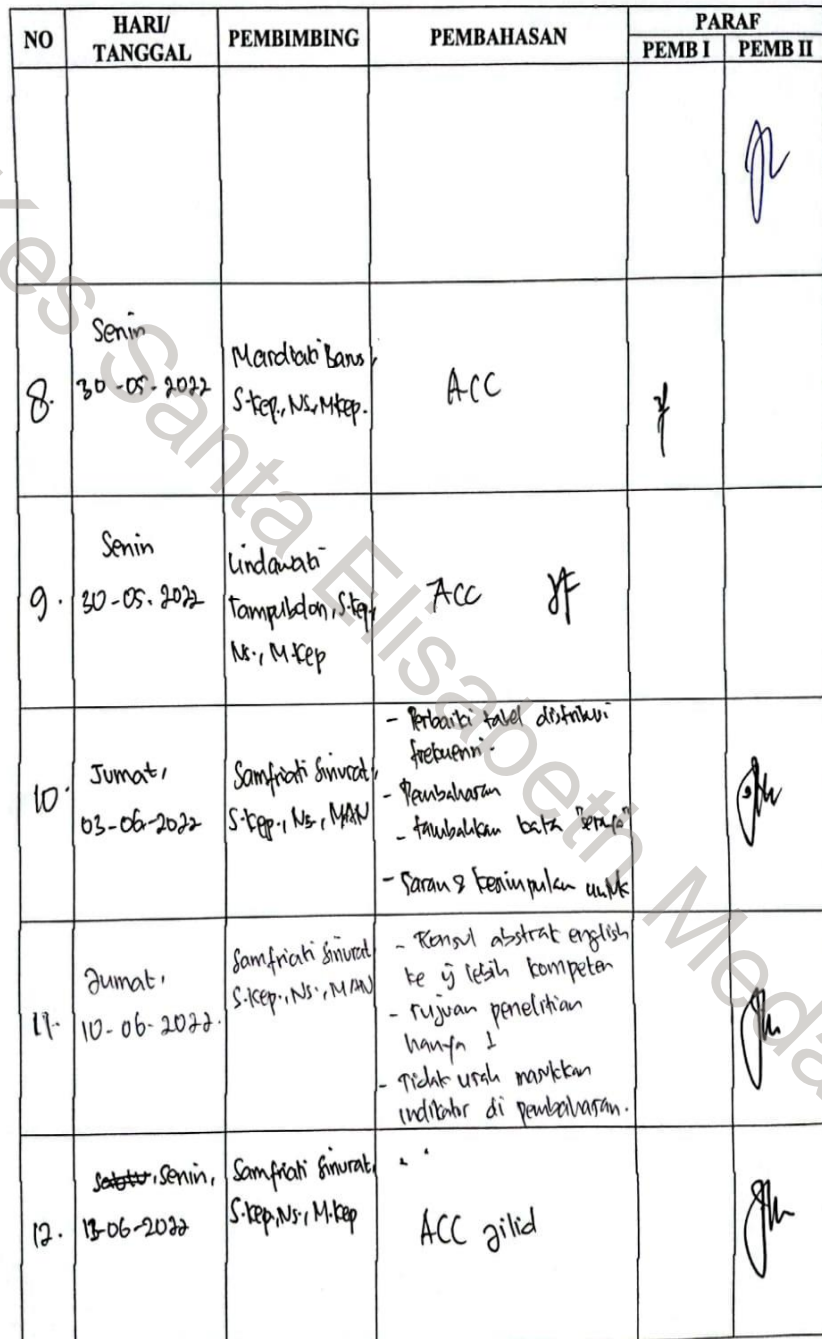 NO
HARI/
TANGGAL
PEMBIMBING
PEMBAHASAN
PARAF
PEMB I
PEMB II
8.
Senin
30-05-2022
Mardiati Barus,
S.Kep., Ns., M.Kep.
ACC
9.
Senin
30-05-2022
Lindawati
Tampubolon, S.Kep.,
Ns., M.Kep
ACC
10.
Jumat,
03-06-2022
Samfriati Sinurat,
S.Kep., Ns., MAN
- Perbaiki tabel distribusi
frekuensi.
- Pembahasan
- tambahkan kata
- Saran & kesimpulan untuk
11.
Jumat,
10-06-2022.
Samfriati Sinurat
S.Kep., Ns., MAN
- Konsul abstrak english
ke yg lebih kompeten
- Tujuan penelitian
hanya 1
- Tidak usah masukkan
indikator di pembahasan.
12.
Sabtu, Senin,
13-06-2022
Samfriati Sinurat,
S.Kep., Ns., M.Kep
ACC jilid
kes Santa Elisabeth Meda